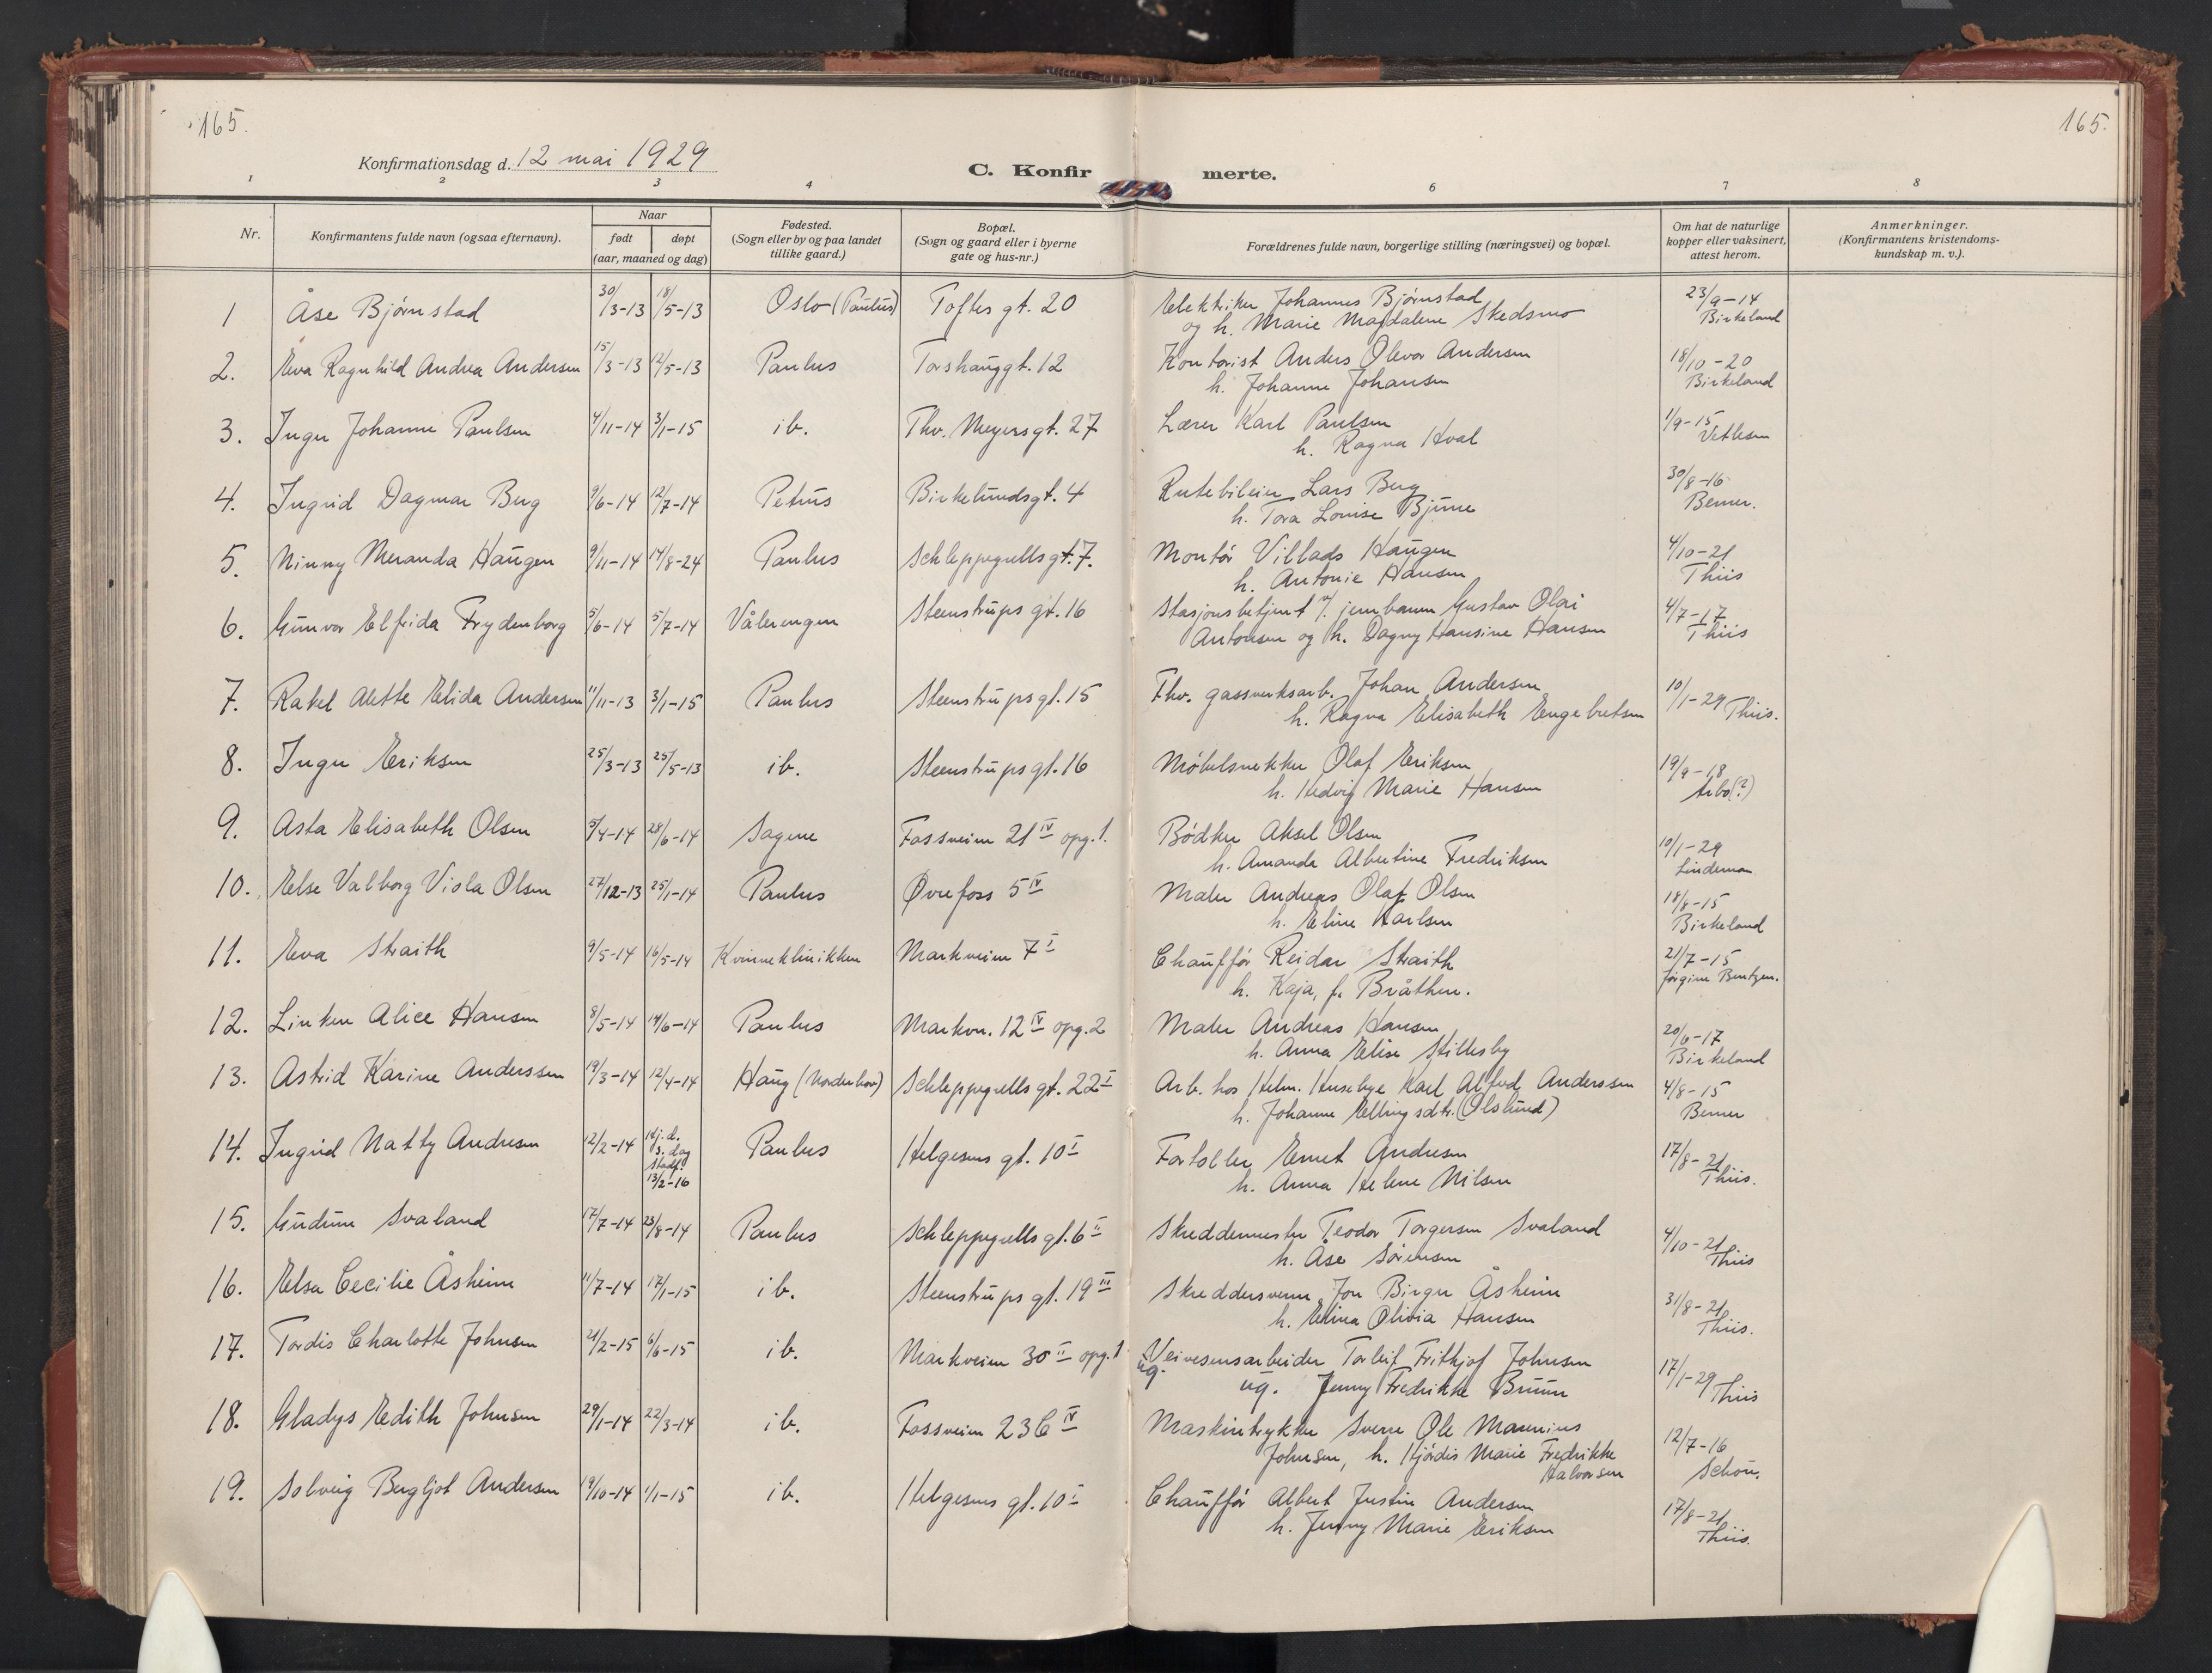 165.
165.
Konfirmationsdag d. 12 mai 1929
C. Konfir merte.
1 2 3 4 6 7 8
Nr.
Konfirmantens fulde navn (ogsaa efternavn).
Naar
født døpt
(aar, maaned og dag)
Fødested.
(Sogn eller by og paa landet
tillike gaard.)
Bopæl.
(Sogn og gaard eller i byerne
gate og hus-nr.)
Forældrenes fulde navn, borgerlige stilling (næringsvei) og bopæl.
Om hat de naturlige
kopper eller vaksinert,
attest herom.
Anmerkninger.
(Konfirmantens kristendoms-
kundskap m. v.).
1 Åse Bjørnstad 30/3-13 18/5-13 Oslo (Paulus) Toftes gt. 20 Elektriker Johannes Bjørnstad 23/9-14
og h. Marie Magdalene Skedsmo Birkeland
2. Eva Ragnhild Andrea Andersen 15/3-13 12/5-13 Paulus Torshauggt. 12 Kontorist Anders Olevor Andersen 18/10-20
h. Johanne Johansen Birkeland
3. Inger Johanne Paulsen 4/11-14 3/1-15 ib. Thv. Meyersgt. 27 Lærer Karl Paulsen 1/9-15
h. Ragna Hval Vetlesen
4. Ingrid Dagmar Berg 9/6-14 12/7-14 Petrus Birkelundsgt. 4 Rutebileier Lars Berg 30/8-16
h. Tora Louise Bjune Berner.
5. Ninny Meranda Haugen 9/11-14 14/8-24 Paulus Schleppegrellsgt. 7. Montør Villads Haugen 4/10-21
h. Antonie Hansen Thiis
6. Gunvor Elfrida Frydenborg 5/6-14 5/7-14 Vålerengen Steenstrups gt. 16 Stasjonsbetjent v/. jernbanen Gustav Olai 4/7-17
Antonsen og h. Dagny Hansine Hansen Thiis
7. Rakel Alette Elida Andersen 11/11-13 3/1-15 Paulus Steenstrupsgt. 15 Fhv. gassverksarb. Johan Andersen 10/1-29 Thiis.
h. Ragna Elisabeth Engebretsen
8. Inger Eriksen 25/3-13 25/5-13 ib. Steenstrupsgt. 16 Møbelsnekker Olaf Eriksen 19/9-18
h. Hedvig Marie Hansen Arbo(?)
9. Asta Elisabeth Olsen 5/4-14 28/6-14 Sagene Fossveien 21 IV opg. 1. Bødker Aksel Olsen 10/1-29
h. Amanda Albertine Fredriksen Lindeman
10. Else Valborg Viola Olsen 27/12-13 25/1-14 Paulus Øvrefoss 5 IV Maler Andreas Olaf Olsen 18/8-15
h. Eline Karlsen Birkeland
11. Eva Straith 9/5-14 16/5-14 Kvinneklinikken Markveien 7 I Chauffør Reidar Straith 21/7-15
h. Kaja, f. Bråthen. Jørgine Bentzen.
12. Linken Alice Hansen 8/5-14 14/6-14 Paulus Markvn. 12 IV opg. 2 Maler Andreas Hansen 20/6-17
h. Anna Elise Stillesby Birkeland
13. Astrid Karine Anderssen 19/3-14 12/4-14 Haug (Norderhov) Schleppegrells gt. 22 I Arb. hos Helm. Husebye Karl Alfred Anderssen 4/8-15
h. Johanne Ellingsdtr. (Olslund) Berner
14. Ingrid Natty Andresen 12/2-14 Hj.d. 3. dag Stadf. 13/2-16 Paulus Helgesens gt. 10 I Fortoller Ernst Andresen 17/8-21
h. Anna Helene Nilsen Thiis.
15. Gudrun Svaland 17/7-14 23/8-14 Paulus Schleppegrells gt. 6 II Skreddermester Teodor Torgersen Svaland 4/10-21
h. Åse Sørensen Thiis
16. Elsa Cecilie Åsheim 11/7-14 17/1-15 ib. Steenstrups gt. 19 III Skreddersvenn Jon Birger Åsheim 31/8-21
h. Elina Olivia Hansen Thiis.
17. Tordis Charlotte Johnsen 21/2-15 6/6-15 ib. Markveien 30 II opg. 1 Veivesensarbeider Torleif Fritkjof Johnsen 17/1-29 Thiis
ug. ug. Jenny Fredrikke Bruun
18. Gladys Edith Johnsen 29/1-14 22/3-14 ib. Fossveien 23 C IV Maskintrykker Sverre Ole Maurius 12/7-16
Johnsen, h. Hjørdis Marie Fredrikke Halvorsen Schou.
19. Solveig Bergljot Andersen 19/10-14 1/1-15 ib. Helgesens gt. 10 I Chauffør Albert Justin Andersen 17/8-21
h. Jenny Marie Eriksen Thiis.